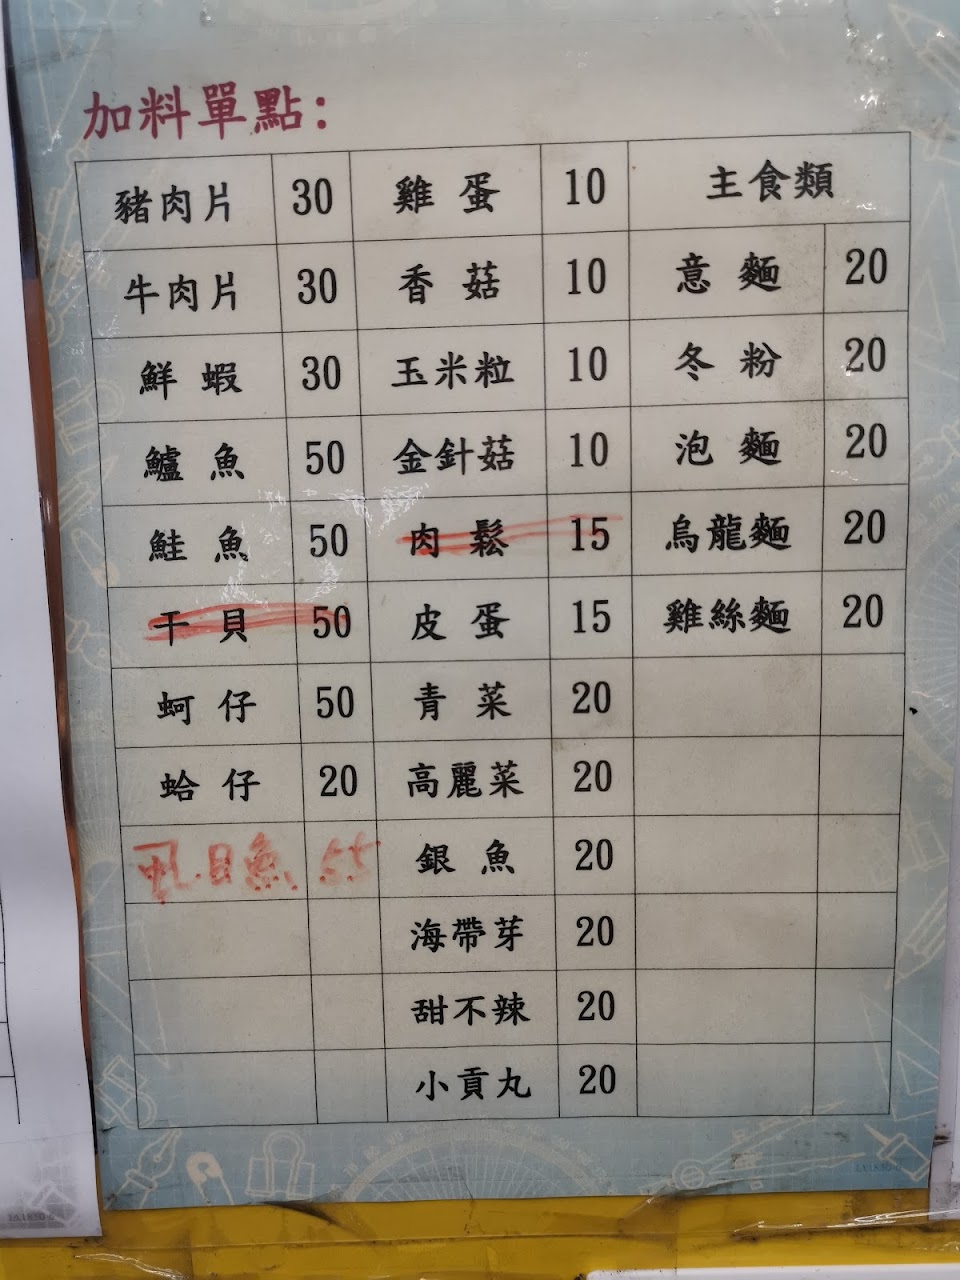 加料單點:
豬肉片 30 雞蛋 10 主食類
牛肉片 30 香菇 10 意麵 20
鮮蝦 30 玉米粒 10 冬粉 20
鱸魚 50 金針菇 10 泡麵 20
鮭魚 50 肉鬆 15 烏龍麵 20
干貝 50 皮蛋 15 雞絲麵 20
蚵仔 50 青菜 20
蛤仔 20 高麗菜 20
虱目魚 55 銀魚 20
海帶芽 20
甜不辣 20
小貢丸 20